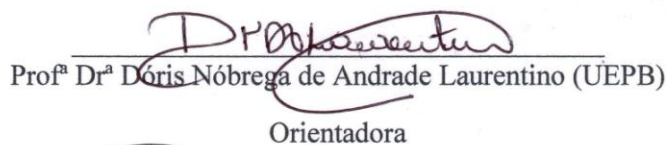 Profª Drª Dóris Nóbrega de Andrade Laurentino (UEPB)
Orientadora